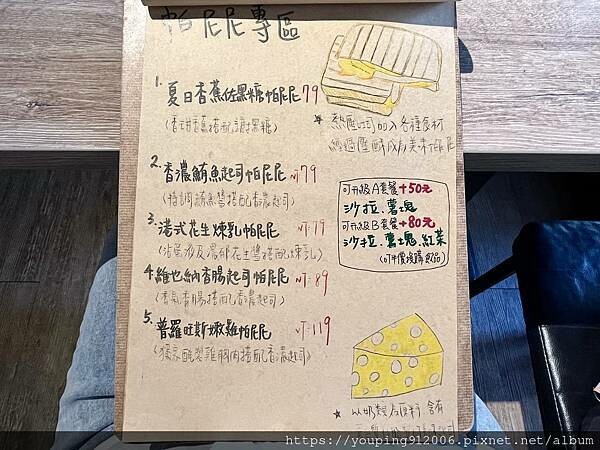 帕尼尼專區
1. 夏日香蕉佐黑糖帕尼尼 79
(香甜香蕉搭配調黑糖)
★ 熱壓吐司加入各種食材
經過壓酥成為美味帕尼尼
2. 香濃鮪魚起司帕尼尼 NT79
(特調鮪魚醬搭配香濃起司)
3. 港式花生煉乳帕尼尼 NT:79
(沾蛋液及濃郁花生醬搭配煉乳)
4. 維也納香腸起司帕尼尼 NT:89
(香氣香腸搭配香濃起司)
5. 普羅旺斯嫩雞帕尼尼 NT:119
(獨家醃製雞胸肉搭配香濃起司)
可升級A套餐+50元
沙拉、薯塊
可升級B套餐+80元
沙拉、薯塊、紅茶
(可半價換購飲品)
★ 以奶類為原料 含有
https://youping912006.pixnet.net/album